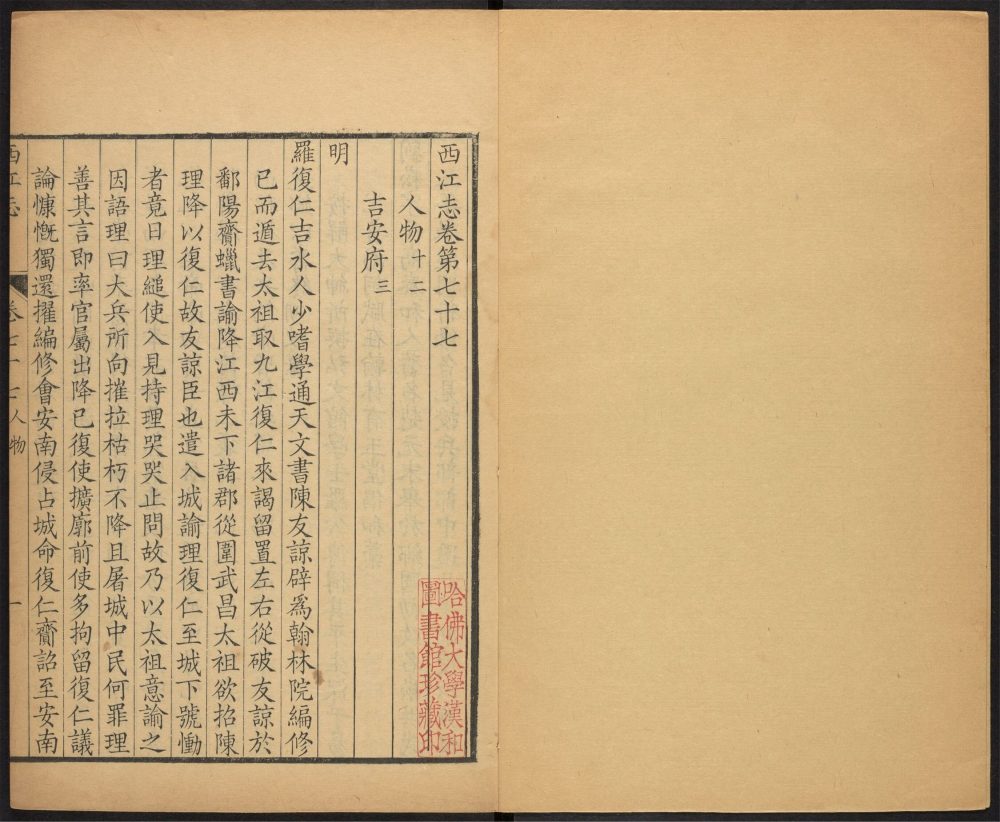 西江志卷第七十七
人物十二
吉安府三
明
羅復仁吉水人少嗜學通天文書陳友諒辟爲翰林院編修
已而遁去太祖取九江復仁來謁留置左右從破友諒於
鄱陽齎蠟書諭降江西未下諸郡從圍武昌太祖欲招陳
理降以復仁故友諒臣也遣入城諭理復仁至城下號慟
者竟日理縋使入見持理哭哭止問故乃以太祖意諭之
因語理曰大兵所向摧拉枯朽不降且屠城中民何罪理
善其言即率官屬出降已復使擴廓前使多拘留復仁議
論慷慨獨還擢編修會安南侵占城命復仁齎詔至安南
西江志 卷七十七人物 一
哈佛大學漢和
圖書館珍藏印